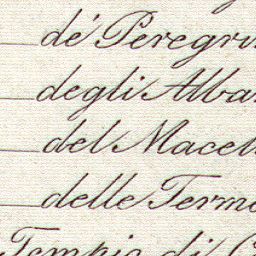 de' Peregrin
degli Alba
del Macell
delle Terme
Tempio di